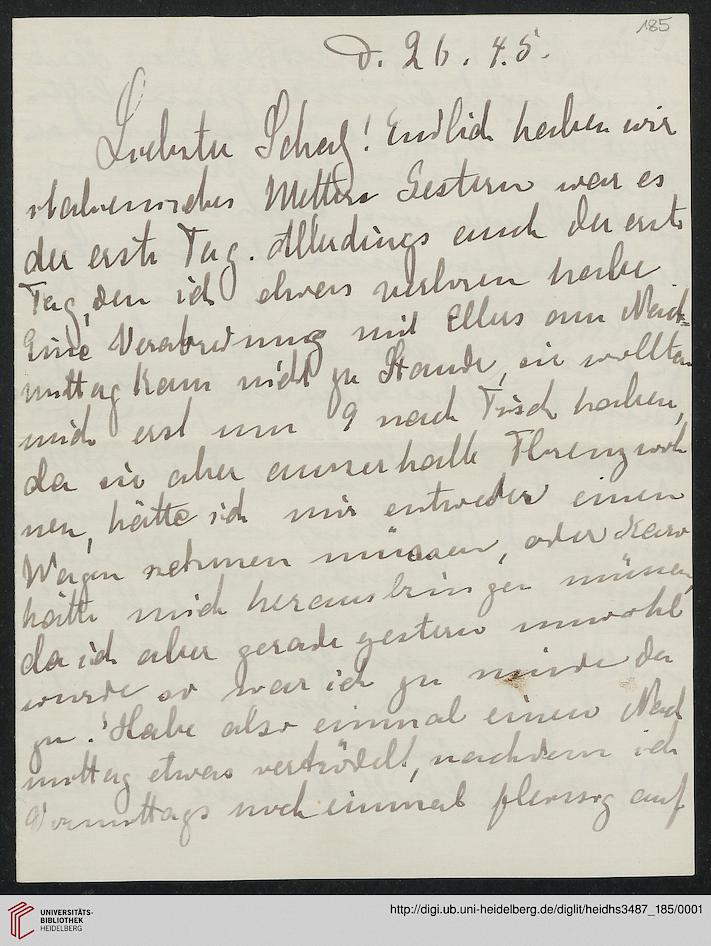 185
d. 26. 4. 5.
Liebster Schatz! Endlich haben wir
italienisches Wetter. Gestern war es
der erste Tag. Allerdings auch der erste
Tag, den ich etwas verloren habe
Eine Verabredung mit Ellis am Nach=
mittag kam nicht zu Stande, sie wollten
mich erst um 9 nach Tisch haben,
da sie aber ausserhalb Florenz woh
nen, hätte ich mir entweder einen
Wagen nehmen müssen, oder Karo
hätte mich herausbringen müssen,
da ich aber gerade gestern unwohl
wurde so war ich zu müde da
zu. Habe also einmal einen Nach
mittag etwas vertrödelt, nachdem ich
Vormittags noch einmal fleissig auf
UNIVERSITÄTS-
BIBLIOTHEK
HEIDELBERG
http://digi.ub.uni-heidelberg.de/diglit/heidhs3487_185/0001